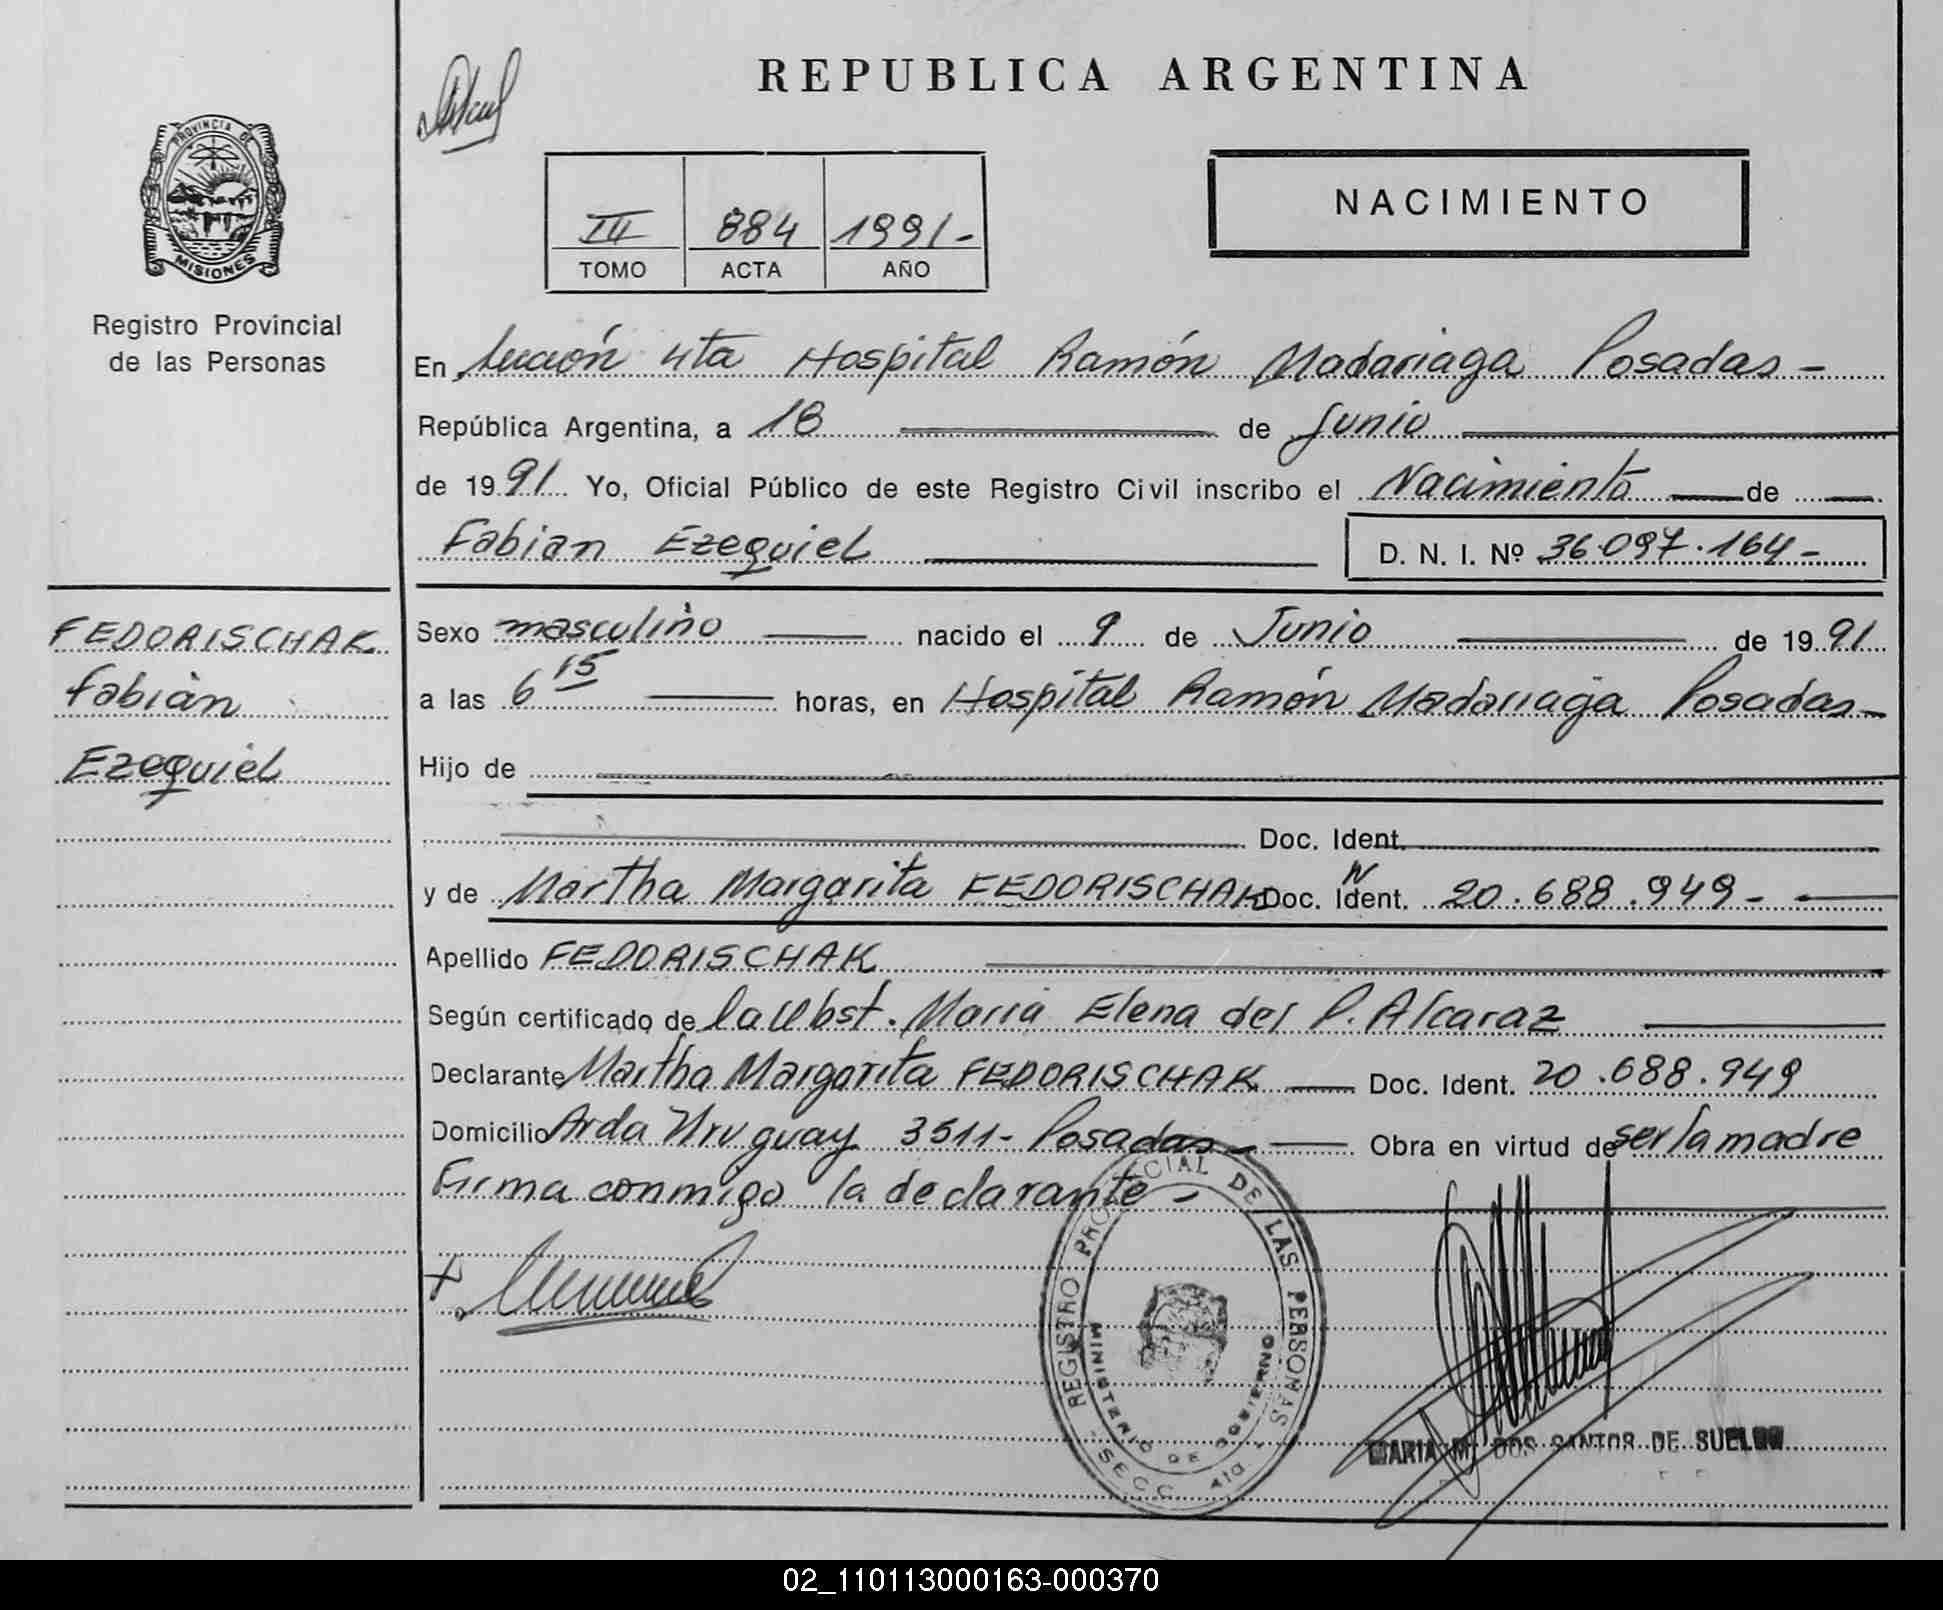 REPUBLICA ARGENTINA
PROVINCIA DE
MISIONES
Registro Provincial
de las Personas
III 884 1991-
TOMO ACTA AÑO
NACIMIENTO
En Sección 4ta Hospital Ramón Madariaga Posadas -
República Argentina, a 18 de Junio
de 1991 Yo, Oficial Público de este Registro Civil inscribo el Nacimiento de
Fabian Ezequiel D. N. I. Nº 36.097.164-
FEDORISCHAK
Fabián
Ezequiel
Sexo masculino nacido el 9 de Junio de 1991
a las 6 15 horas, en Hospital Ramón Madariaga Posadas-
Hijo de
Doc. Ident.
y de Martha Margarita FEDORISCHAK Doc. Ident. N 20.688.949-
Apellido FEDORISCHAK
Según certificado de la Obst. María Elena del P. Alcaraz
Declarante Martha Margarita FEDORISCHAK Doc. Ident. 20.688.949
Domicilio Avda Uruguay 3511- Posadas- Obra en virtud de ser la madre
Firma conmigo la declarante-
REGISTRO PROVINCIAL DE LAS PERSONAS
MINISTERIO DE GOBIERNO
- SECC. 4ta. -
MARIA M. DOS SANTOS DE
02_110113000163-000370